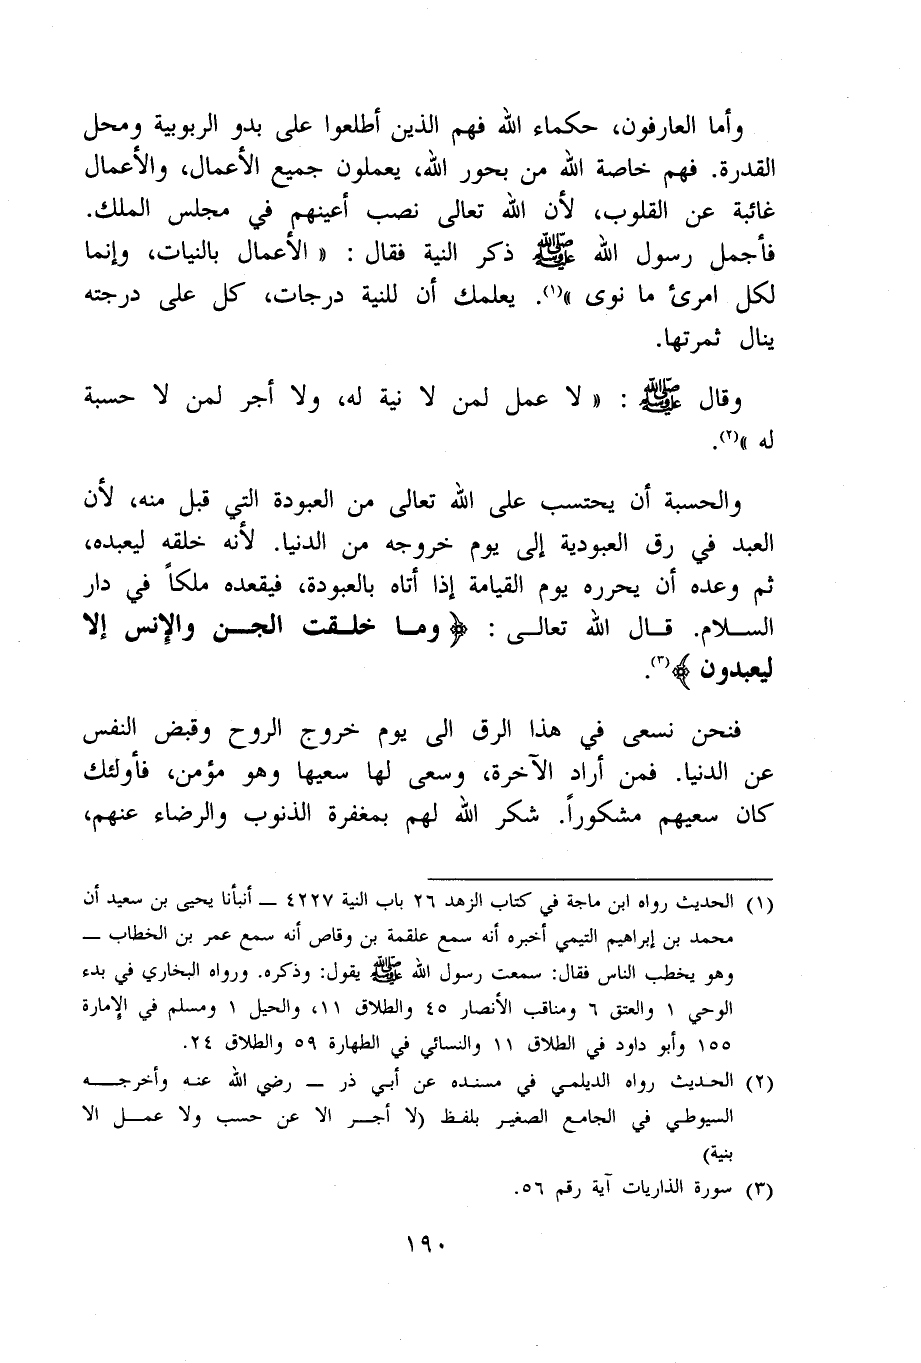 وأما العارفون، حكماء الله فهم الذين أطلعوا على بدو الربوبية ومحل
القدرة. فهم خاصة الله من بحور الله، يعملون جميع الأعمال، والأعمال
غائبة عن القلوب، لأن الله تعالى نصب أعينهم في مجلس الملك.
فأجمل رسول الله ﷺ ذكر النية فقال : « الأعمال بالنيات، وإنما
لكل امرئ ما نوى »(١). يعلمك أن للنية درجات، كل على درجته
ينال ثمرتها.
وقال ﷺ : « لا عمل لمن لا نية له، ولا أجر لمن لا حسبة
له »(٢).
والحسبة أن يحتسب على الله تعالى من العبودة التي قبل منه، لأن
العبد في رق العبودية إلى يوم خروجه من الدنيا. لأنه خلقه ليعبده،
ثم وعده أن يحرره يوم القيامة إذا أتاه بالعبودة، فيقعده ملكاً في دار
السلام. قال الله تعالى : ﴿ وما خلقت الجن والإنس إلا
ليعبدون ﴾(٣).
فنحن نسعى في هذا الرق الى يوم خروج الروح وقبض النفس
عن الدنيا. فمن أراد الآخرة، وسعى لها سعيها وهو مؤمن، فأولئك
كان سعيهم مشكوراً. شكر الله لهم بمغفرة الذنوب والرضاء عنهم،
(١) الحديث رواه ابن ماجة في كتاب الزهد ٢٦ باب النية ٤٢٢٧ ـ أنبأنا يحيى بن سعيد أن
محمد بن إبراهيم التيمي أخبره أنه سمع علقمة بن وقاص أنه سمع عمر بن الخطاب ـ
وهو يخطب الناس فقال: سمعت رسول الله ﷺ يقول: وذكره. ورواه البخاري في بدء
الوحي ١ والعتق ٦ ومناقب الأنصار ٤٥ والطلاق ١١، والحيل ١ ومسلم في الإمارة
١٥٥ وأبو داود في الطلاق ١١ والنسائي في الطهارة ٥٩ والطلاق ٢٤.
(٢) الحديث رواه الديلمي في مسنده عن أبي ذر ـ رضي الله عنه وأخرجه
السيوطي في الجامع الصغير بلفظ (لا أجر الا عن حسب ولا عمل الا
بنية)
(٣) سورة الذاريات آية رقم ٥٦.
١٩٠